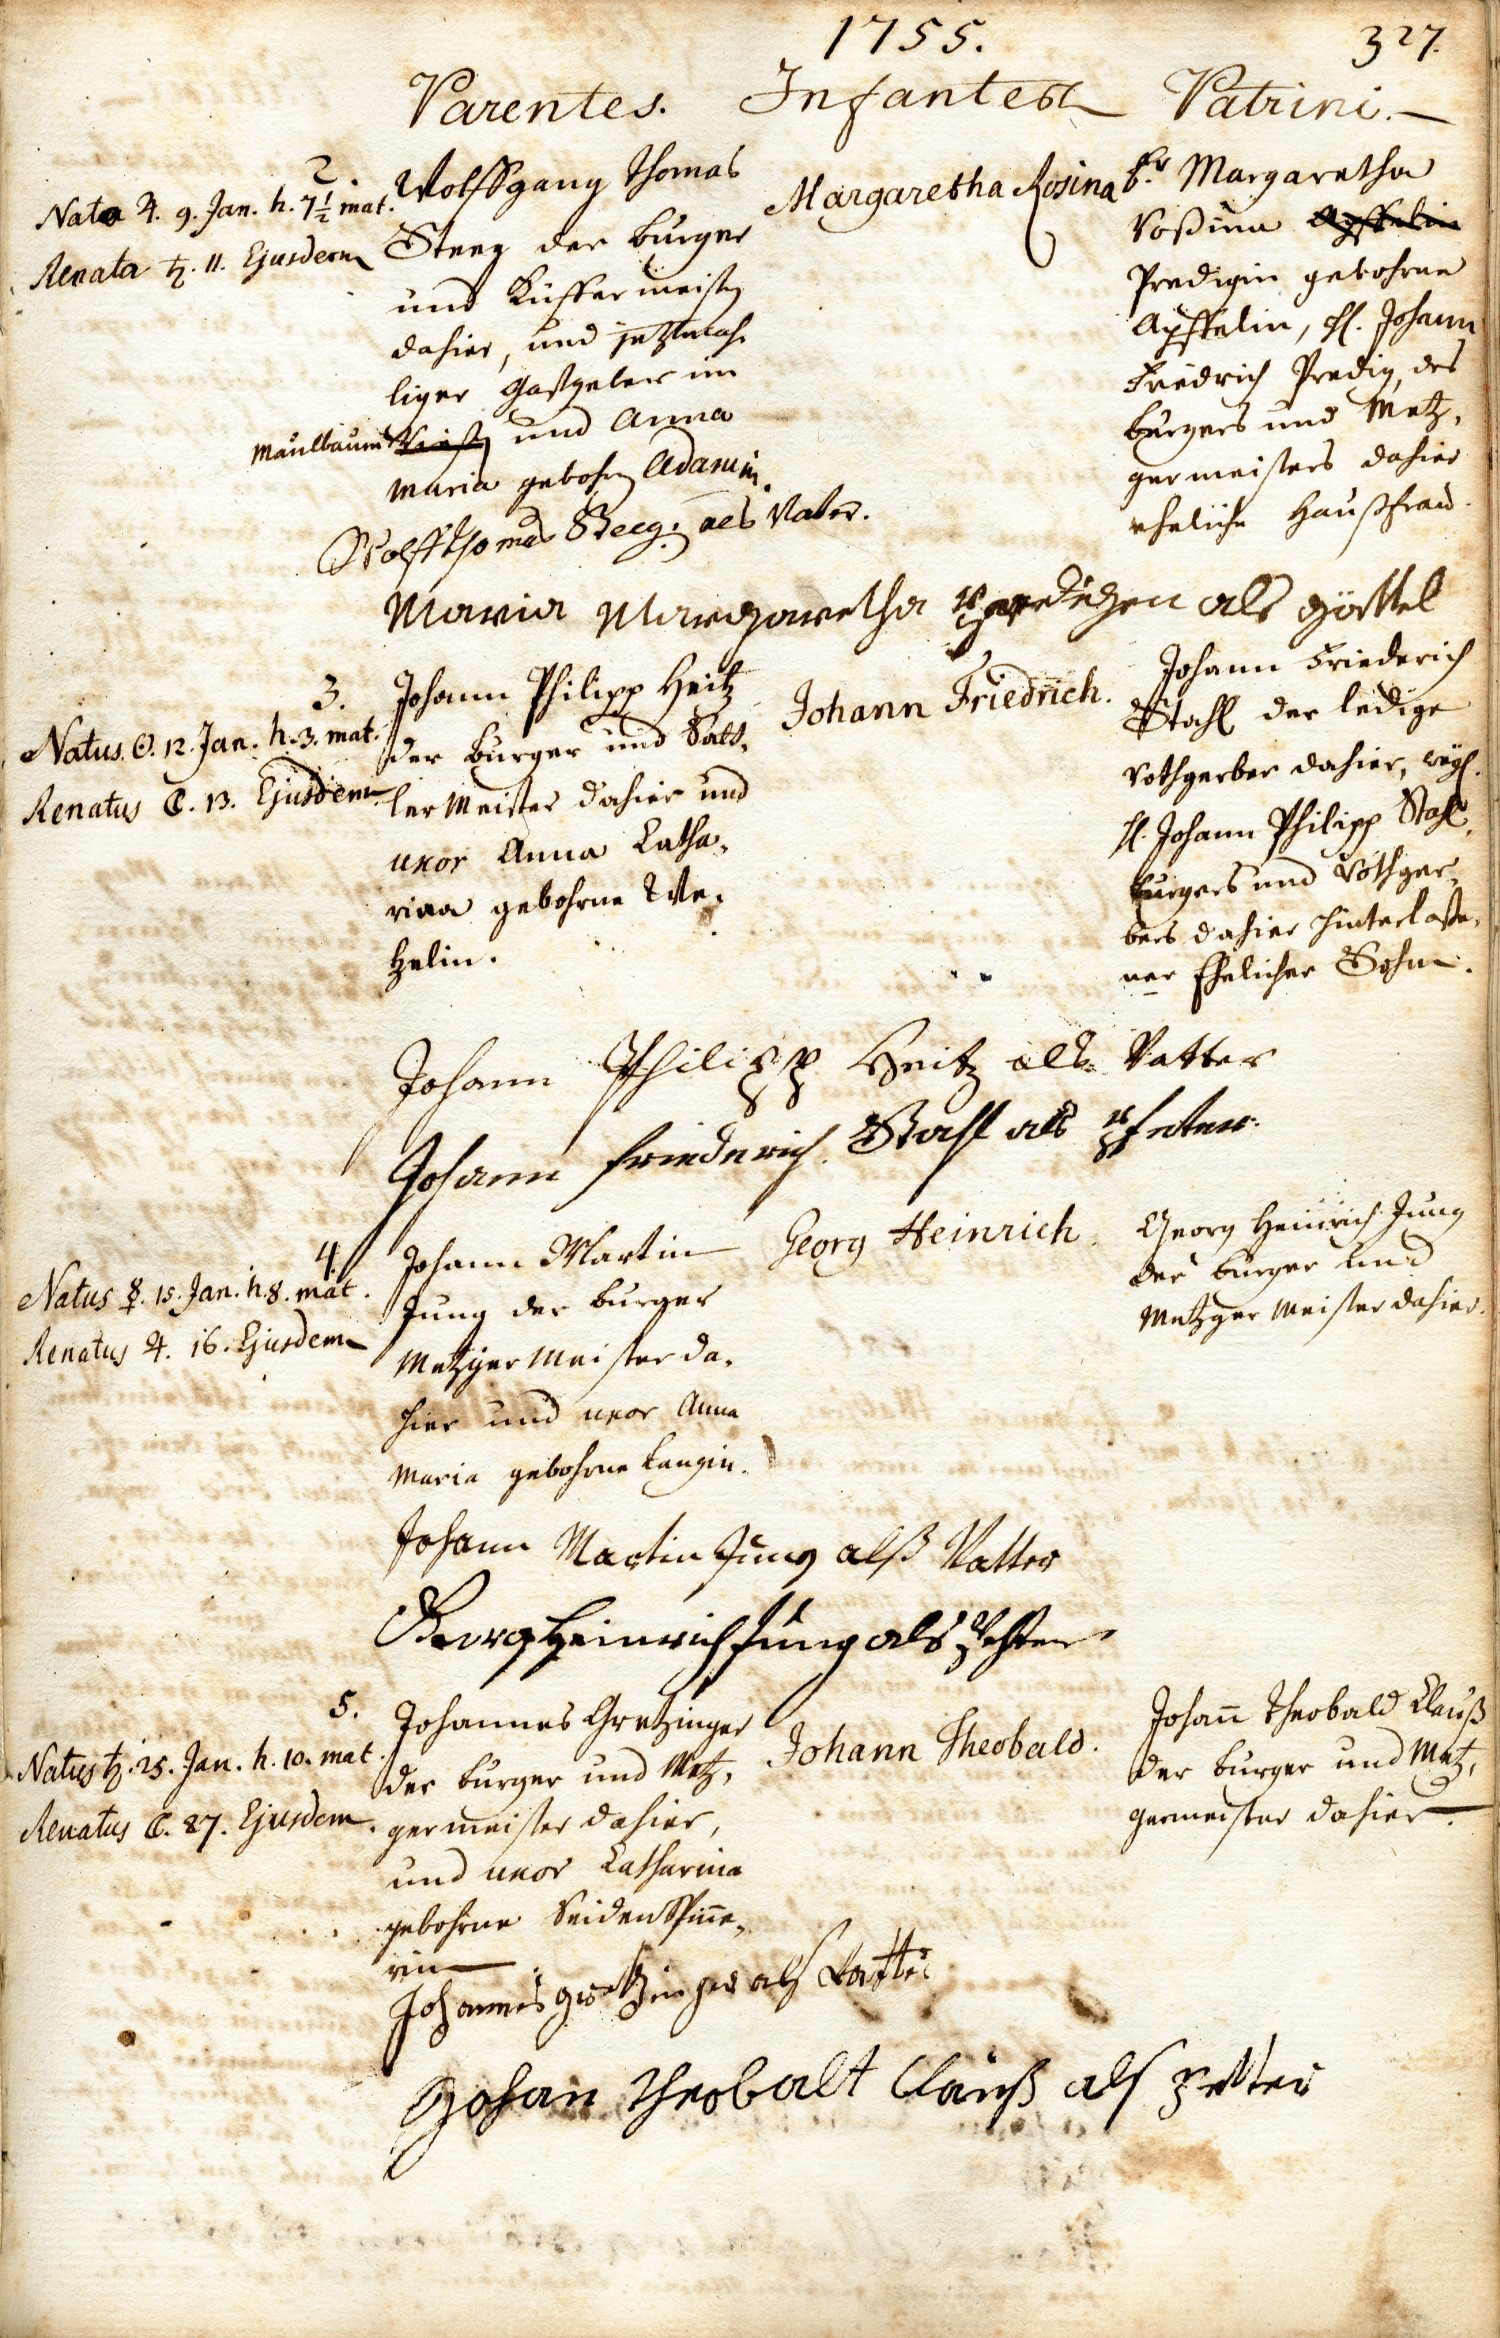 1755.
327.
Parentes.
Infantes
Patrini.
2.
Nata ♃. 9. Jan. h. 7½ mat.
Renata ♄. 11. Ejusdem
Wolffgang Thomas
Steeg der burger
und Küffermeister
dahier, und jetzmah-
liger Gastgeber im
Maulbaum und Anna
Maria gebohrn Adamin.
Margaretha Rosina
Fr. Margaretha
Roßina
Predigin gebohrne
Apffelin, H. Johann
Friedrich Predig, des
burgers und Metz-
germeisters dahier
eheliche Haußfrau.
Wolff Thomas Steeg: als Vater.
Maria Margaretha Predigen als göttel
3.
Natus ☉. 12. Jan. h. 3. mat.
Renatus ☾. 13. Ejusdem
Johann Philipp Heitz
der burger und Satt-
ler Meister dahier und
uxor Anna Catha-
rina gebohrne We-
tzelin.
Johann Friedrich.
Johann Friederich
Stahl der ledige
Rothgerber dahier, weyl.
H. Johann Philipp Stahl,
burgers und Rothger-
bers dahier hinterlaße-
ner Ehelicher Sohn.
Johann Philipp Heitz als Vatter
Johann Friederich Stahl als Pfetter.
4.
Natus ☿. 15. Jan. h. 8. mat.
Renatus ♃. 16. Ejusdem
Johann Martin
Jung der burger
Metzger Meister da-
hier und uxor Anna
Maria gebohrne Langin.
Georg Heinrich.
Georg Heinrich Jung
der burger und
Metzger Meister dahier.
Johann Martin Jung alß Vatter
Georg Heinrich Jung als Pfetter
5.
Natus ♄. 25. Jan. h. 10. mat.
Renatus ☾. 27. Ejusdem.
Johannes Gretzinger
der burger und Metz-
germeister dahier,
und uxor Catharina
gebohrne Seidenspinne-
rin.
Johann Theobald.
Johann Theobald Clauß
der burger und Metz-
germeister dahier.
Johannes Gretzinger als Vatter
Johan Theobalt Clauß als Petter